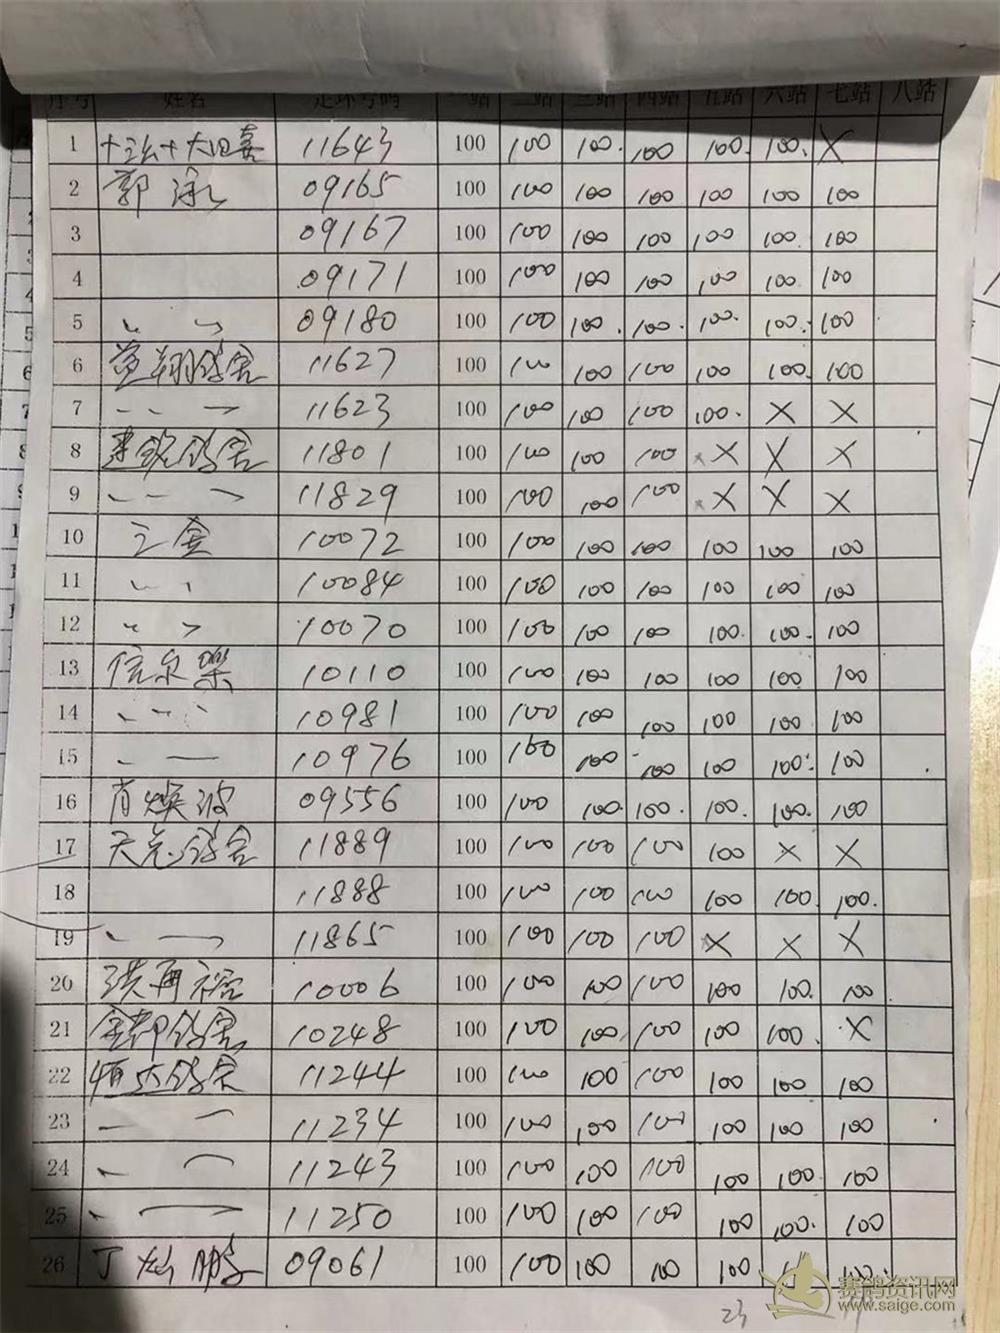 序号 姓名 足环号码 一站 二站 三站 四站 五站 六站 七站 八站
1 11643 100 100 100. 100 100. 100. X
2 郭泳 09165 100 100 100 100 100 100 100
3 09167 100 100 100 100 100 100. 100
4 09171 100 100 100 100 100 100 100
5 〃 09180 100 100 100. 100. 100. 100. 100
6 翔鸽舍 11627 100 100 100 100 100 100. 100
7 〃 11623 100 100 100 100 100. X X
8 建 鸽舍 11801 100 100 100 100 X X X
9 〃 11829 100 100 100 100 X X X
10 王金 10072 100 100 100 100 100 100 100
11 〃 10084 100 100 100 100 100 100 100
12 〃 10070 100 100 100 100 100. 100. 100
13 信泉 10110 100 100 100 100 100 100 100
14 〃 10981 100 100 100 100 100 100 100
15 〃 10976 100 100 100 100 100 100. 100
16 肖焕波 09556 100 100 100. 100. 100. 100. 100
17 天元鸽舍 11889 100 100 100 100 100 X X
18 11888 100 100 100 100 100 100. 100.
19 〃 11865 100 100 100 100 X X X
20 洪再裕 10006 100 100 100 100 100 100. 100
21 金都鸽舍 10248 100 100 100 100 100 100 X
22 恒达鸽舍 11244 100 100 100 100 100 100 100
23 〃 11234 100 100 100 100 100 100 100
24 〃 11243 100 100 100 100 100 100 100
25 〃 11250 100 100 100 100 100 100. 100
26 丁 鹏 09061 100 100 100 100 100
23
赛鸽资讯网
www.saige.com